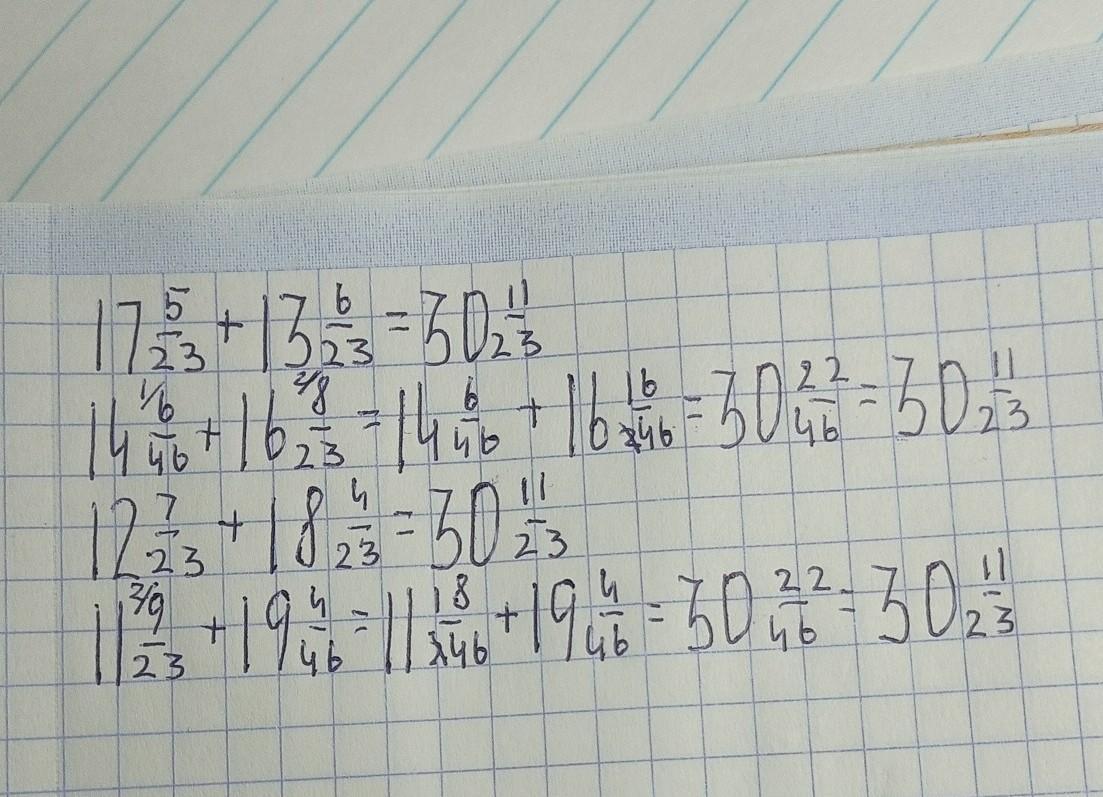 17 5/23 + 13 6/23 = 30 11/23
14 ¹⁄6/46 + 16 ²⁄8/23 = 14 6/46 + 16 16/46 = 30 22/46 = 30 11/23
12 7/23 + 18 4/23 = 30 11/23
11 ²⁄9/23 + 19 4/46 = 11 18/46 + 19 4/46 = 30 22/46 = 30 11/23